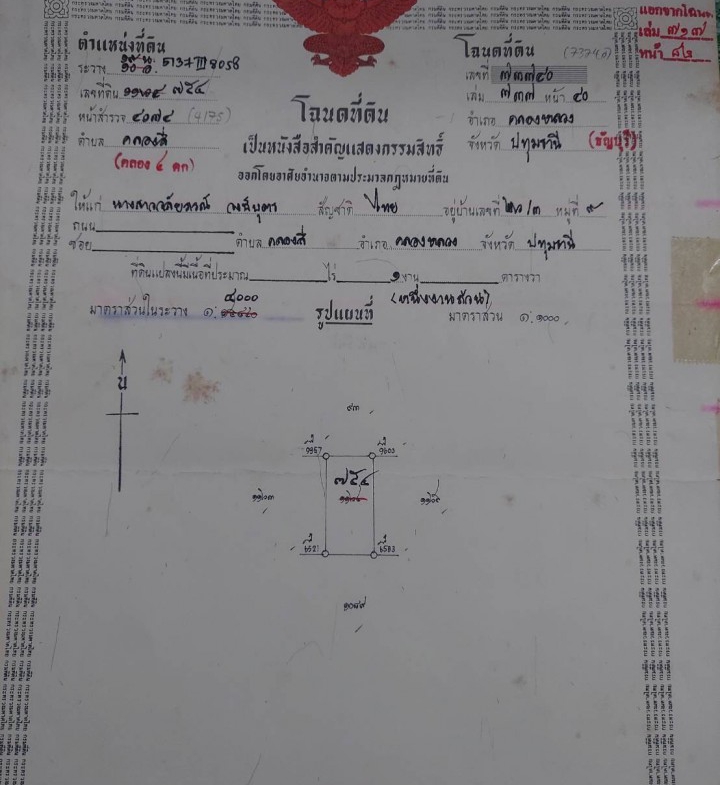 แยกจากโฉนด
เล่ม ๗๑๗
หน้า ๘๒
ตำแหน่งที่ดิน
ระวาง 5137 III 9058
เลขที่ดิน ๗๕๔
หน้าสำรวจ ๔๐๗๕ (4175)
ตำบล คลองสี่
(คลอง ๔ ตก)
โฉนดที่ดิน
เลขที่ ๗๓๗๔๐ (73740)
เล่ม ๗๓๗ หน้า ๔๐
อำเภอ คลองหลวง
จังหวัด ปทุมธานี (ธัญบุรี)
โฉนดที่ดิน
เป็นหนังสือสำคัญแสดงกรรมสิทธิ์
ออกโดยอาศัยอำนาจตามประมวลกฎหมายที่ดิน
ให้แก่ นางสาว สัญชาติ ไทย อยู่บ้านเลขที่ ๒๖/๓ หมู่ที่ ๙
ถนน
ซอย ตำบล คลองสี่ อำเภอ คลองหลวง จังหวัด ปทุมธานี
ที่ดินแปลงนี้มีเนื้อที่ประมาณ ไร่ ๑ งาน ตารางวา
(หนึ่งงานถ้วน)
๔๐๐๐
มาตราส่วนในระวาง ๑: รูปแผนที่ มาตราส่วน ๑:๑๐๐๐
น
๙๓
๗๕๔
๑๑๐๓
๑๐๘๙